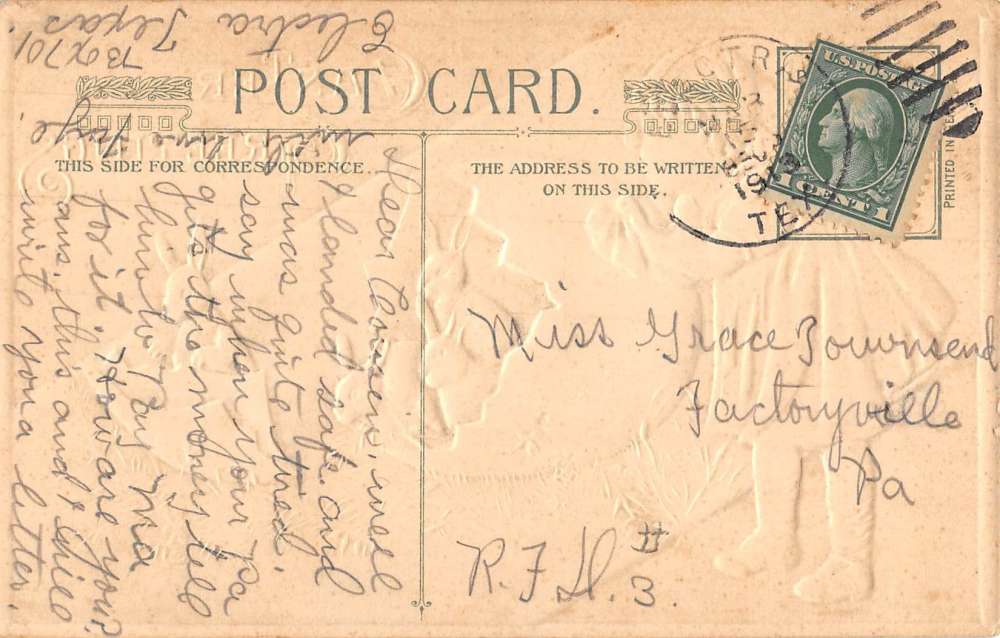 POST CARD.
THIS SIDE FOR CORRESPONDENCE.
THE ADDRESS TO BE WRITTEN
ON THIS SIDE.
PRINTED IN
U.S. POSTAGE
1 CENT 1
1913
TEX
Dear Cousen, well
I landed safe and
was quite tired.
say when your Pa
gets the money tell
him to Pay Ma
for it. How are you?
ans. this and I will
write you a letter.
with love
Box 701
Electra
Texas
Miss Grace Townsend
Factoryville
Pa
R.F.D. #
3.